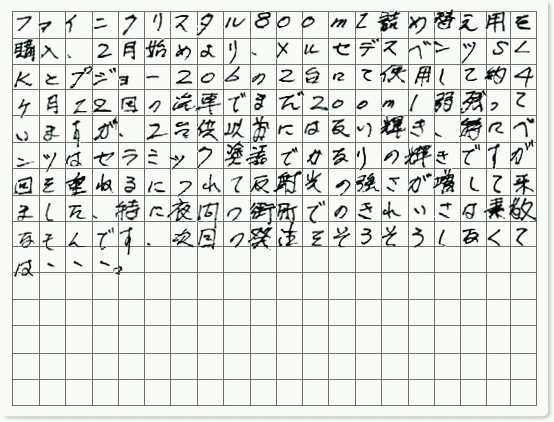 ファインクリスタル800ml詰め替え用を
購入、2月始めより、メルセデスベンツSL
Kとプジョー206の2台にて使用して約4
ケ月12回の洗車でまだ200ml弱残って
いますが、2台供以前には無い輝き、特にベ
ンツはセラミック塗装でかなりの輝きですが
回を重ねるにつれて反射光の強さが増して来
ました、特に夜間の街所でのきれいさは素敵
なもんです、次回の発注をそろそろしなくて
は、、、。